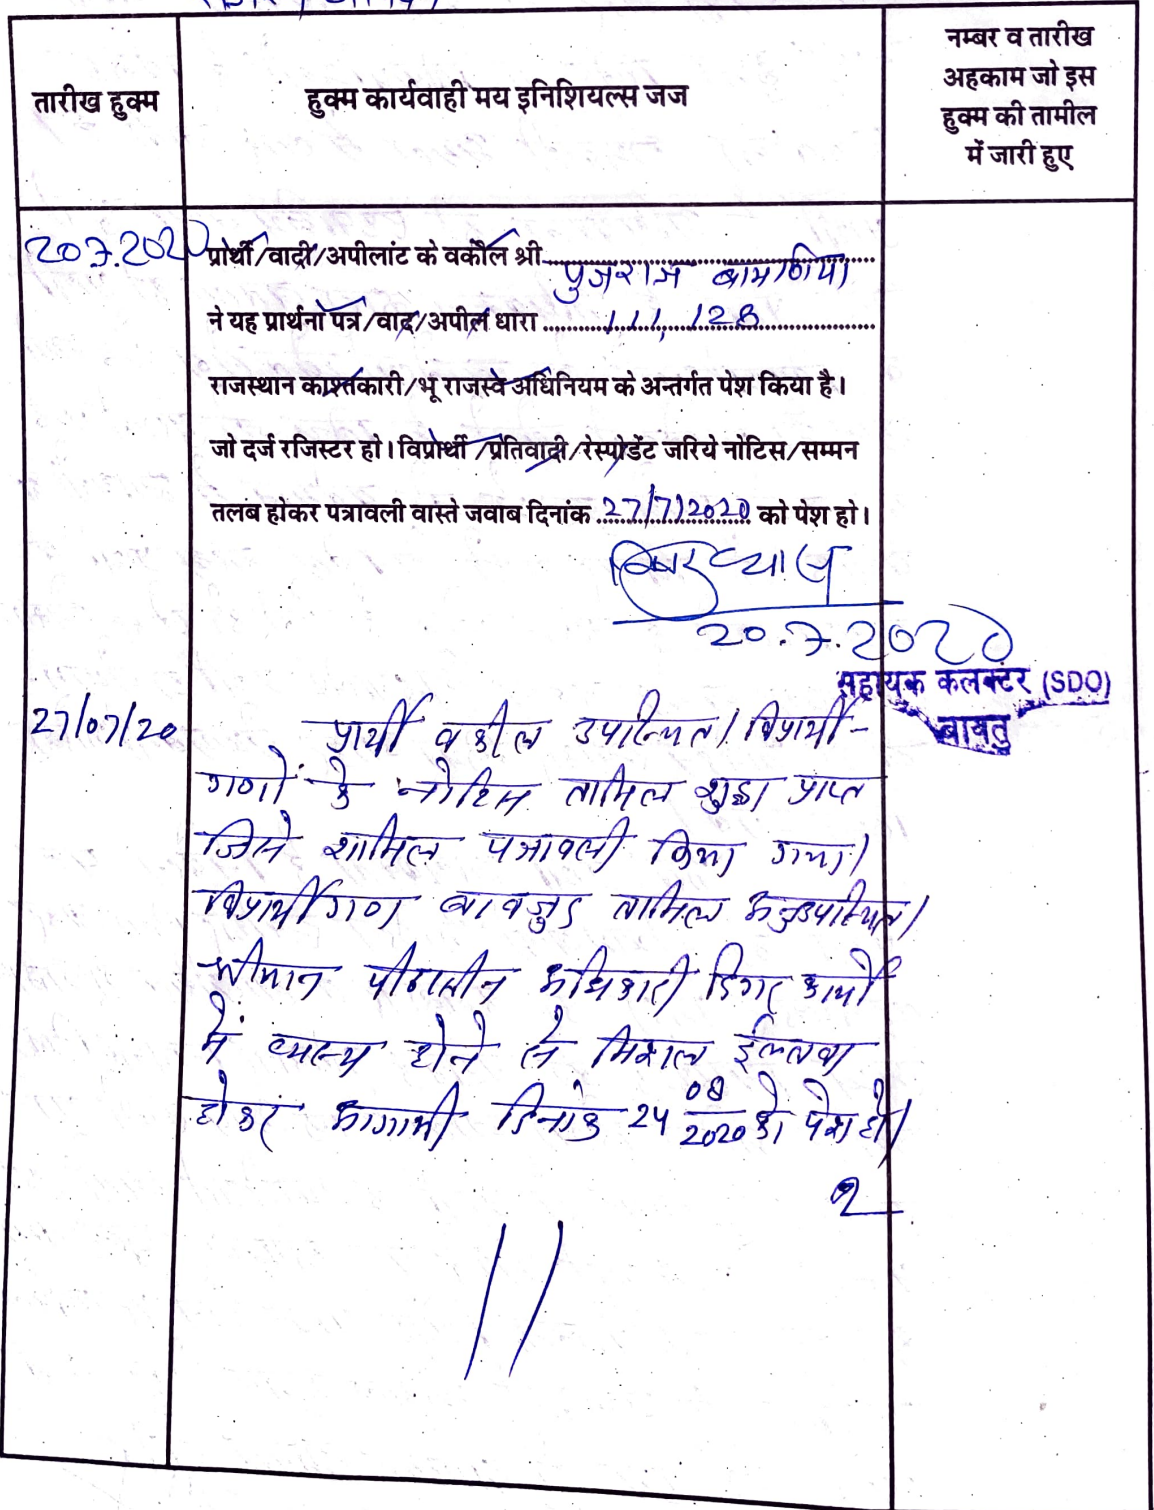 तारीख हुक्म
हुक्म कार्यवाही मय इनिशियल्स जज
नम्बर व तारीख
अहकाम जो इस
हुक्म की तामील
में जारी हुए
20.7.2020
प्रार्थी/वादी/अपीलांट के वकील श्री
पुजराज बामणिया
ने यह प्रार्थना पत्र/वाद/अपील धारा 111, 128
राजस्थान काश्तकारी/भू राजस्व अधिनियम के अन्तर्गत पेश किया है।
जो दर्ज रजिस्टर हो। विप्रार्थी/प्रतिवादी/रेस्पोडेंट जरिये नोटिस/सम्मन
तलब होकर पत्रावली वास्ते जवाब दिनांक 27/7/2020 को पेश हो।
20.7.2020
सहायक कलक्टर (SDO)
बायतु
27/07/20
प्रार्थी वकील उपस्थित। विप्रार्थी-
गणों के नोटिस तामिल शुदा प्राप्त
जिसे शामिल पत्रावली किया गया।
विप्रार्थीगण बावजुद तामिल अनुउपस्थित।
श्रीमान पीठासीन अधिकारी दिगर कार्यो
में व्यस्त होने से मिशल ईल्तवा
होकर आगामी दिनांक 24 08/2020 को पेश हो।